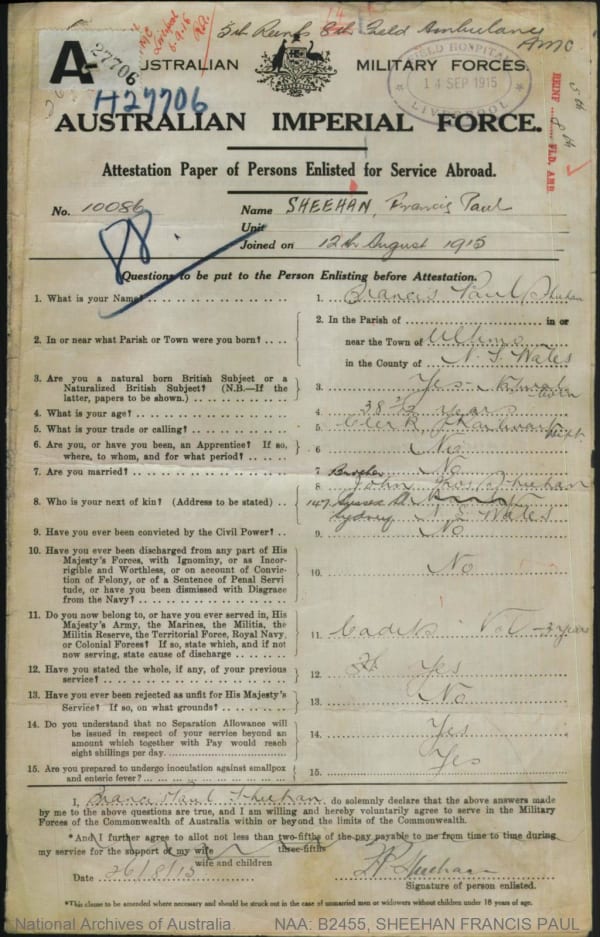 5th Reinfs 8th Field Ambulance
AMC
A-27706
H27706
AUSTRALIAN MILITARY FORCES.
FIELD HOSPITAL
14 SEP 1915
LIVERPOOL
REINF 8th FLD. AMB.
AUSTRALIAN IMPERIAL FORCE.
Attestation Paper of Persons Enlisted for Service Abroad.
No. 10086 Name SHEEHAN, Francis Paul
Unit
Joined on 12th August 1915
Questions to be put to the Person Enlisting before Attestation.
1. What is your Name? 1. Francis Paul Sheehan
2. In or near what Parish or Town were you born? 2. In the Parish of in or
near the Town of Ultimo
in the County of N. S. Wales
3. Are you a natural born British Subject or a
Naturalized British Subject? (N.B.—If the
latter, papers to be shown.) 3. Yes - Natural born
4. What is your age? 4. 38 years
5. What is your trade or calling? 5. Clerk
6. Are you, or have you been, an Apprentice? If so,
where, to whom, and for what period? 6. No
7. Are you married? 7. No
8. Who is your next of kin? (Address to be stated) 8. Brother John Sheehan
147 Sussex St.
Sydney N S Wales
9. Have you ever been convicted by the Civil Power? 9. No
10. Have you ever been discharged from any part of His
Majesty's Forces, with Ignominy, or as Incor-
rigible and Worthless, or on account of Convic-
tion of Felony, or of a Sentence of Penal Servi
tude, or have you been dismissed with Disgrace
from the Navy? 10. No
11. Do you now belong to, or have you ever served in, His
Majesty's Army, the Marines, the Militia, the
Militia Reserve, the Territorial Force, Royal Navy,
or Colonial Forces? If so, state which, and if not
now serving, state cause of discharge 11. Cadets - Vol - 3 years
12. Have you stated the whole, if any, of your previous
service? 12. Yes
13. Have you ever been rejected as unfit for His Majesty's
Service? If so, on what grounds? 13. No
14. Do you understand that no Separation Allowance will
be issued in respect of your service beyond an
amount which together with Pay would reach
eight shillings per day. 14. Yes
15. Are you prepared to undergo inoculation against smallpox
and enteric fever? 15. Yes
I, Francis Paul Sheehan, do solemnly declare that the above answers made
by me to the above questions are true, and I am willing and hereby voluntarily agree to serve in the Military
Forces of the Commonwealth of Australia within or beyond the limits of the Commonwealth.
*And I further agree to allot not less than two-fifths of the pay payable to me from time to time during
three-fifths
my service for the support of my wife
wife and children
Date 26/8/15 F P Sheehan
Signature of person enlisted.
*This clause to be amended where necessary and should be struck out in the case of unmarried men or widowers without children under 18 years of age.
National Archives of Australia NAA: B2455, SHEEHAN FRANCIS PAUL